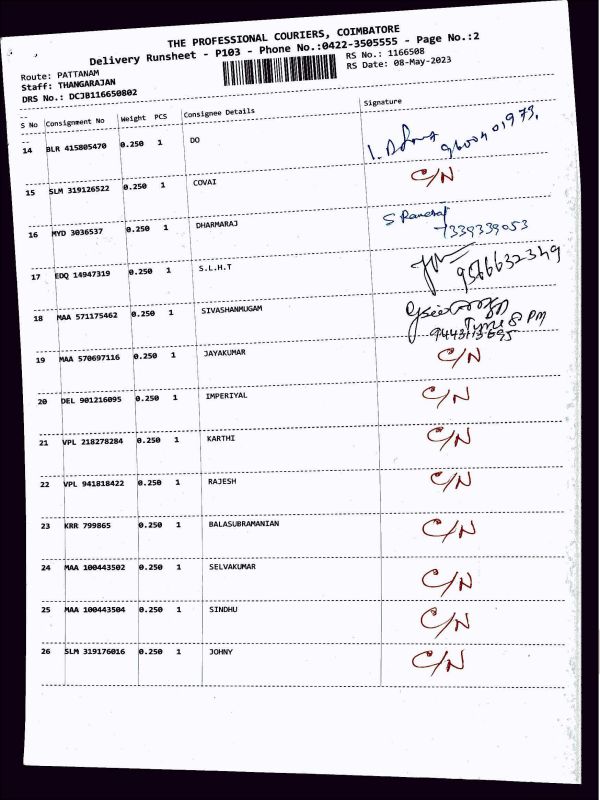 THE PROFESSIONAL COURIERS, COIMBATORE
Delivery Runsheet - P103 - Phone No.:0422-3505555 - Page No.:2
Route: PATTANAM
RS No.: 1166508
Staff: THANGARAJAN
RS Date: 08-May-2023
DRS No.: DCJB116650802
S No Consignment No Weight PCS Consignee Details Signature
14 BLR 415805470 0.250 1 DO
15 SLM 319126522 0.250 1 COVAI C/N
16 MYD 3036537 0.250 1 DHARMARAJ
7339339053
17 EDQ 14947319 0.250 1 S.L.H.T 9566632349
18 MAA 571175462 0.250 1 SIVASHANMUGAM
PM
19 MAA 570697116 0.250 1 JAYAKUMAR C/N
20 DEL 901216095 0.250 1 IMPERIYAL C/N
21 VPL 218278284 0.250 1 KARTHI C/N
22 VPL 941818422 0.250 1 RAJESH C/N
23 KRR 799865 0.250 1 BALASUBRAMANIAN C/N
24 MAA 100443502 0.250 1 SELVAKUMAR C/N
25 MAA 100443504 0.250 1 SINDHU C/N
26 SLM 319176016 0.250 1 JOHNY C/N